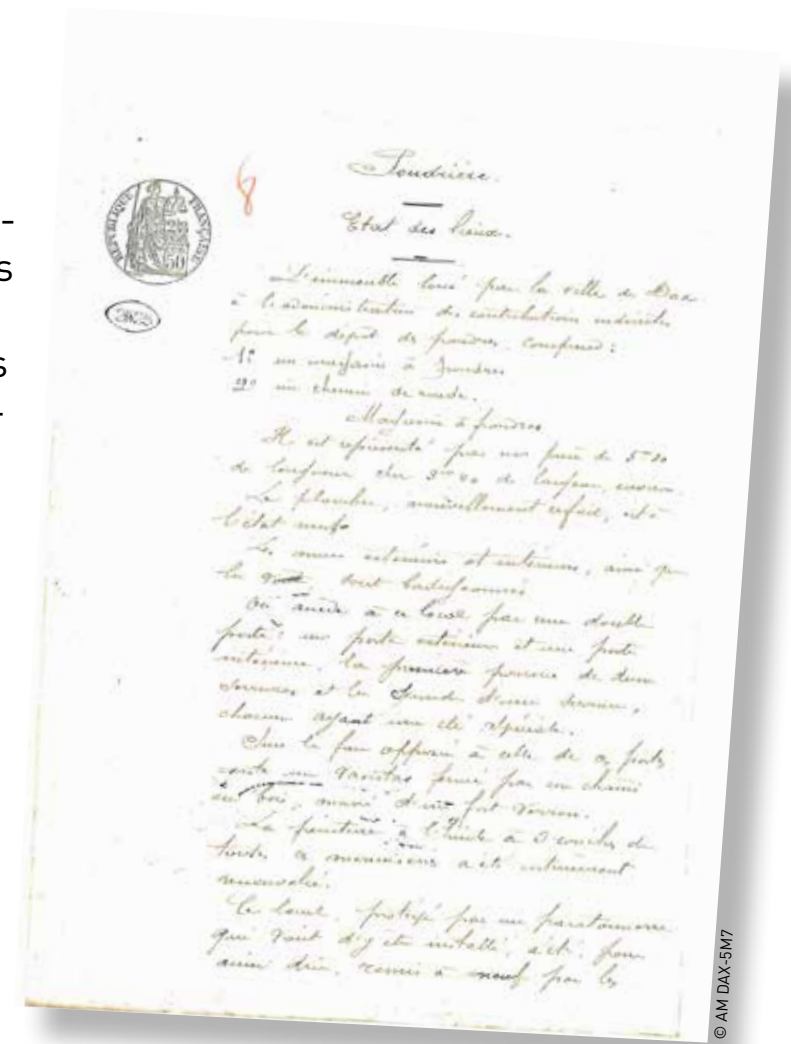 -
s
s
-
8
RÉPUBLIQUE FRANÇAISE
50
Poudrière.
Etat des lieux.
L'immeuble loué par la ville de Dax
à l'administration des contributions indirectes
pour le dépôt de poudres comprend :
1º un magasin à poudres
2º un chemin de ronde.
Magasin à poudres
Il est représenté par une pièce de 5m
de longueur sur 3m de largeur environ.
Le plancher, nouvellement refait, est à
l'état neuf
Les murs extérieurs et intérieurs, ainsi que
la voûte sont badigeonnés
On accède à ce local par une double
porte : une porte extérieure et une porte
intérieure. La première pourvue de deux
serrures et la seconde d'une serrure,
chacune ayant une clé spéciale.
Sur la face opposée à celle de ces portes
existe un vasistas fermé par un châssis
en bois, muni d'un fort verrou.
La peinture à l'huile à 3 couches de
toutes ces menuiseries a été entièrement
renouvelée.
Ce local, protégé par un paratonnerre
qui vient d'y être installé, a été, pour
ainsi dire, remis à neuf par les
© AM DAX-5M7